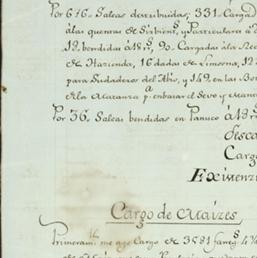 Por 616 Saleas destribuidas; 331 Cargad
à las quentas de Sirbien.s, y Particulares à
12 bendidas à 18 r.s, 90 Cargadas à la
de Hazienda, 16 dadas de Limosna, 12
para Sudaderos del Año, y 149 en las Bo
de la p.a enbarar el Sevo y
Por 36 Saleas bendidas en Panuco à 13 r.s
desco
Carg
Existenz
Cargo de Maizes
Primeram.te me ago Cargo de 3581 faneg.s 4